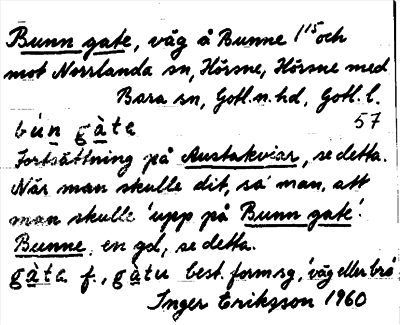 Bunn gate, väg å Bunne 1¹⁵ och
mot Norrlanda sn, Hörsne, Hörsne med
Bara sn, Gotl. n. hd, Gotl. l.
bún gàte 57
Fortsättning på Austakviar, se detta.
När man skulle dit, sa' man, att
man skulle 'upp på Bunn gate'.
Bunne, en gd, se detta.
gàte f., gàtu best. form sg, 'väg eller
Inger Eriksson 1960